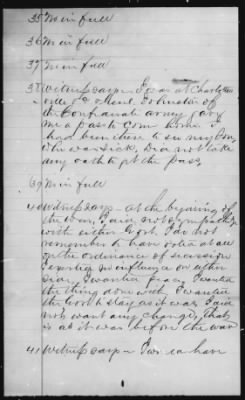 35 No in full
36 No in full
37 No in full
38 Witness says I was at Charlottes
ville &
the Confederate army gave
me a pass to come home. I
had been there to see my son,
who was sick, Did not take
any oath to get the pass
39 No in full
40 Witness says at the begining of
the War, I did not sympathise
with either Govt. I do not
remember to have voted at all
on the ordinance of secession
I exerted no influence or after
I wanted peace, I wanted
the thing done with I wanted
the Govt to stay as it was I did
not want any change, that
is as it was before the war
41 Witness says I